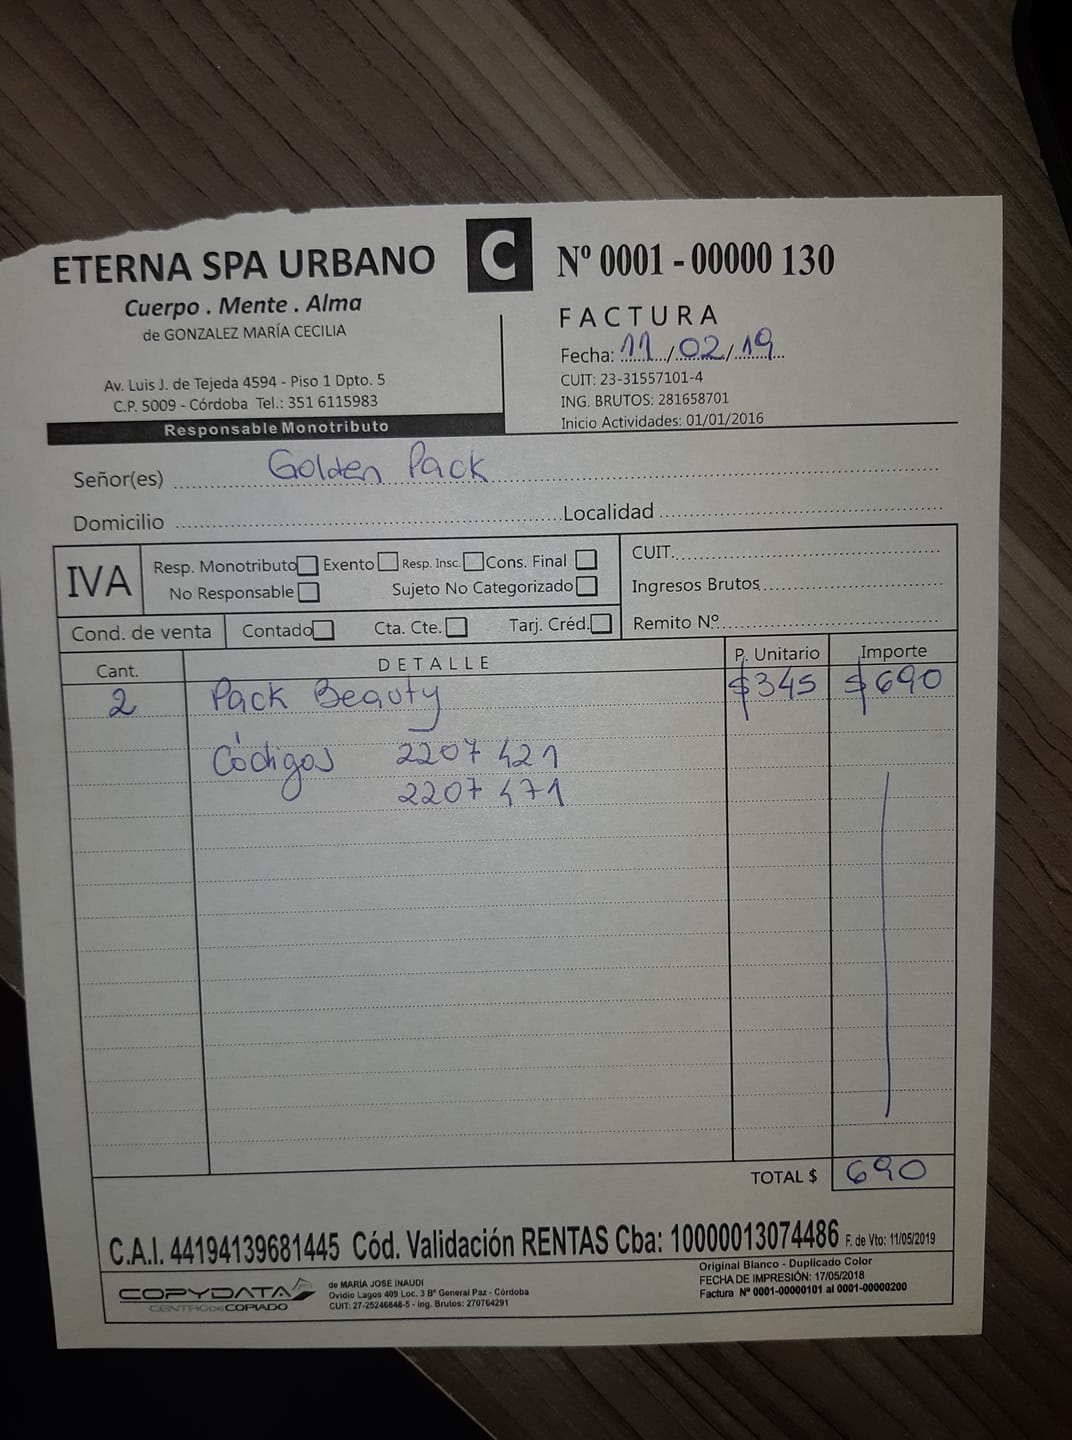 ETERNA SPA URBANO
Cuerpo . Mente . Alma
de GONZALEZ MARÍA CECILIA
Av. Luis J. de Tejeda 4594 - Piso 1 Dpto. 5
C.P. 5009 - Córdoba Tel.: 351 6115983
Responsable Monotributo
C
Nº 0001 - 00000 130
FACTURA
Fecha: 11/02/19
CUIT: 23-31557101-4
ING. BRUTOS: 281658701
Inicio Actividades: 01/01/2016
Señor(es) Golden Pack
Domicilio Localidad
IVA
Resp. Monotributo Exento Resp. Insc. Cons. Final
No Responsable Sujeto No Categorizado
CUIT.
Ingresos Brutos
Remito Nº
Cond. de venta Contado Cta. Cte. Tarj. Créd.
Cant. DETALLE P. Unitario Importe
2 Pack Beauty $345 $690
Códigos 2207421
2207471
TOTAL $ 690
C.A.I. 44194139681445 Cód. Validación RENTAS Cba: 10000013074486 F. de Vto: 11/05/2019
COPYDATA
CENTRO DE COPIADO
de MARÍA JOSÉ INAUDI
Ovidio Lagos 409 Loc. 3 Bº General Paz - Córdoba
CUIT: 27-25246848-5 - Ing. Brutos: 270764291
Original Blanco - Duplicado Color
FECHA DE IMPRESIÓN: 17/05/2018
Factura Nº 0001-00000101 al 0001-00000200